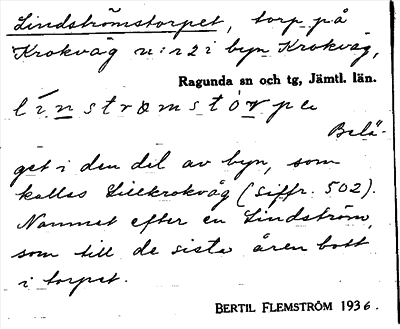 Lindströmstorpet, torp på
Krokvåg n:r 2 i byn Krokvåg,
Ragunda sn och tg, Jämtl. län.
línstrœmstórpe
Belä-
get i den del av byn, som
kallas Lillkrokvåg (siffr. 502).
Namnet efter en Lindström,
som till de sista åren bott
i torpet.
BERTIL FLEMSTRÖM 1936.